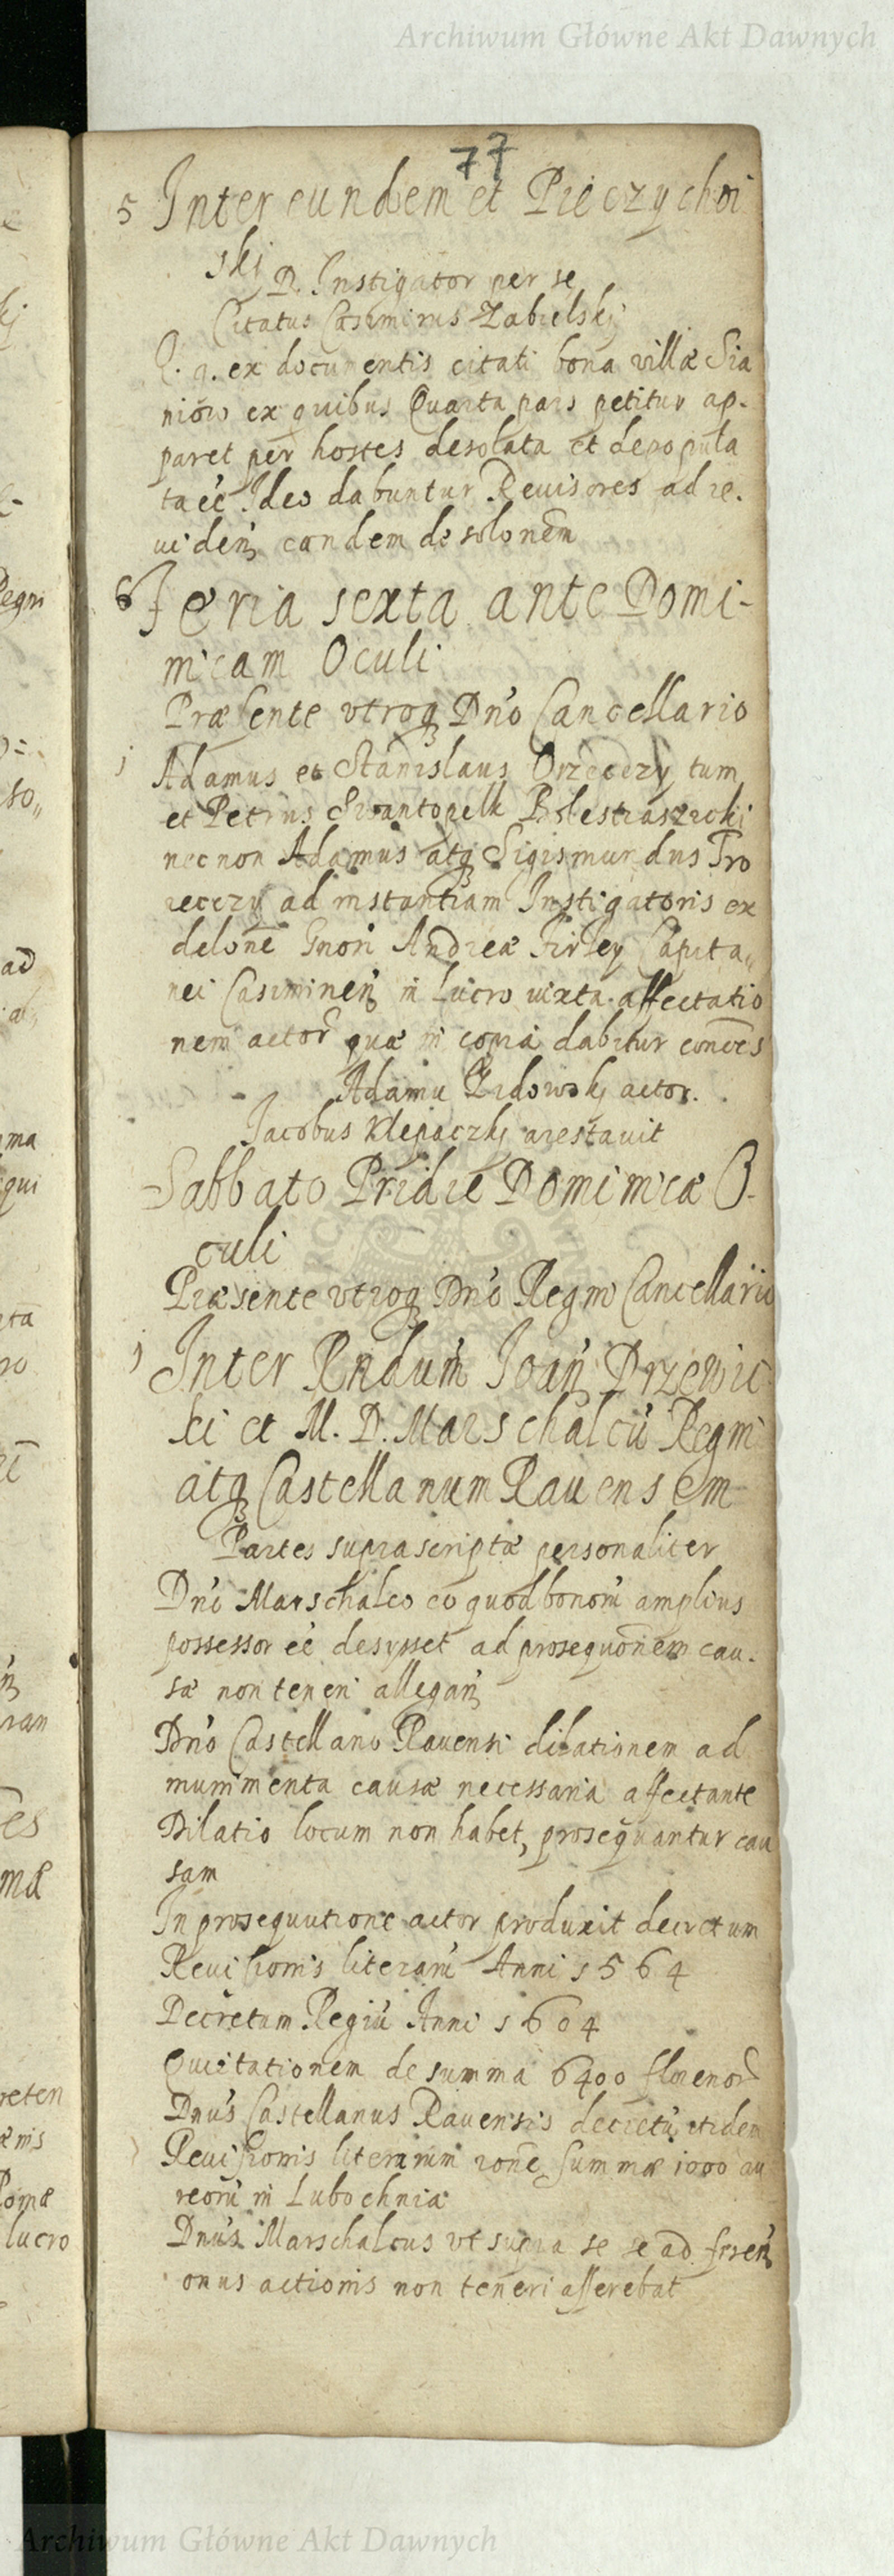 Archiwum Główne Akt Dawnych
77
5 Inter eundem et Pieczychoi
skj
D. Instigator per se
Citatus Casimirus Zabielskj
Q. q. ex documentis citati bona villæ Sia
niow ex quibus Quarta pars petitur ap-
paret per hostes desolata et depopula
ta eē Ideo dabuntur Reuisores ad re.
uiden̄ eandem desolonem
6 Feria sexta ante Domi-
nicam Oculi
Præsente vtroq Dn̄o Cancellario
1 Adamus et Stanislaus Orzeczy tum
et Petrus Swantopelk Bolestraszicki
necnon Adamus atq Sigismundus Fro
reczy ad instantiam Instigatoris ex
delone Gnori Andreæ Firley Capita„
nei Casiminen̄ in lucro iuxta affectatio
nem actor quæ in copia dabitur conces
Adamu Zidowskj actor.
Jacobus Klepaczkj arestauit
Sabbato Pridie Dominicæ O-
culi
Præsente vtroq Dn̄o Regni Cancellario
1 Inter Rndum̄ Joan̄ Drzewic
ki et M. D. Marschalcū Regni
atq Castellanum Rauensem
Partes suprascriptæ personaliter
Dn̄o Marschalco eo quod bonorū amplius
possessor eē desysset ad prosequōnem cau-
sæ non teneri allegan̄
Dn̄o Castellano Rauensi dilationem ad
munimenta causæ necessaria affectante
Dilatio locum non habet, prosequantur cau
sam
In prosequutione actor produxit decretum
Reuisionis literarū Anni 1564
Decretum Regiū Anni 1604
Quietationem de summa 6400 florenor
Dnūs Castellanus Rauensis decretū itidem
Reuisionis literarum rōne summæ 1000 au
reorū in Lubochnia
Dnūs Marschalcus vt supra se se ad
onus actionis non teneri asserebat
Archiwum Główne Akt Dawnych